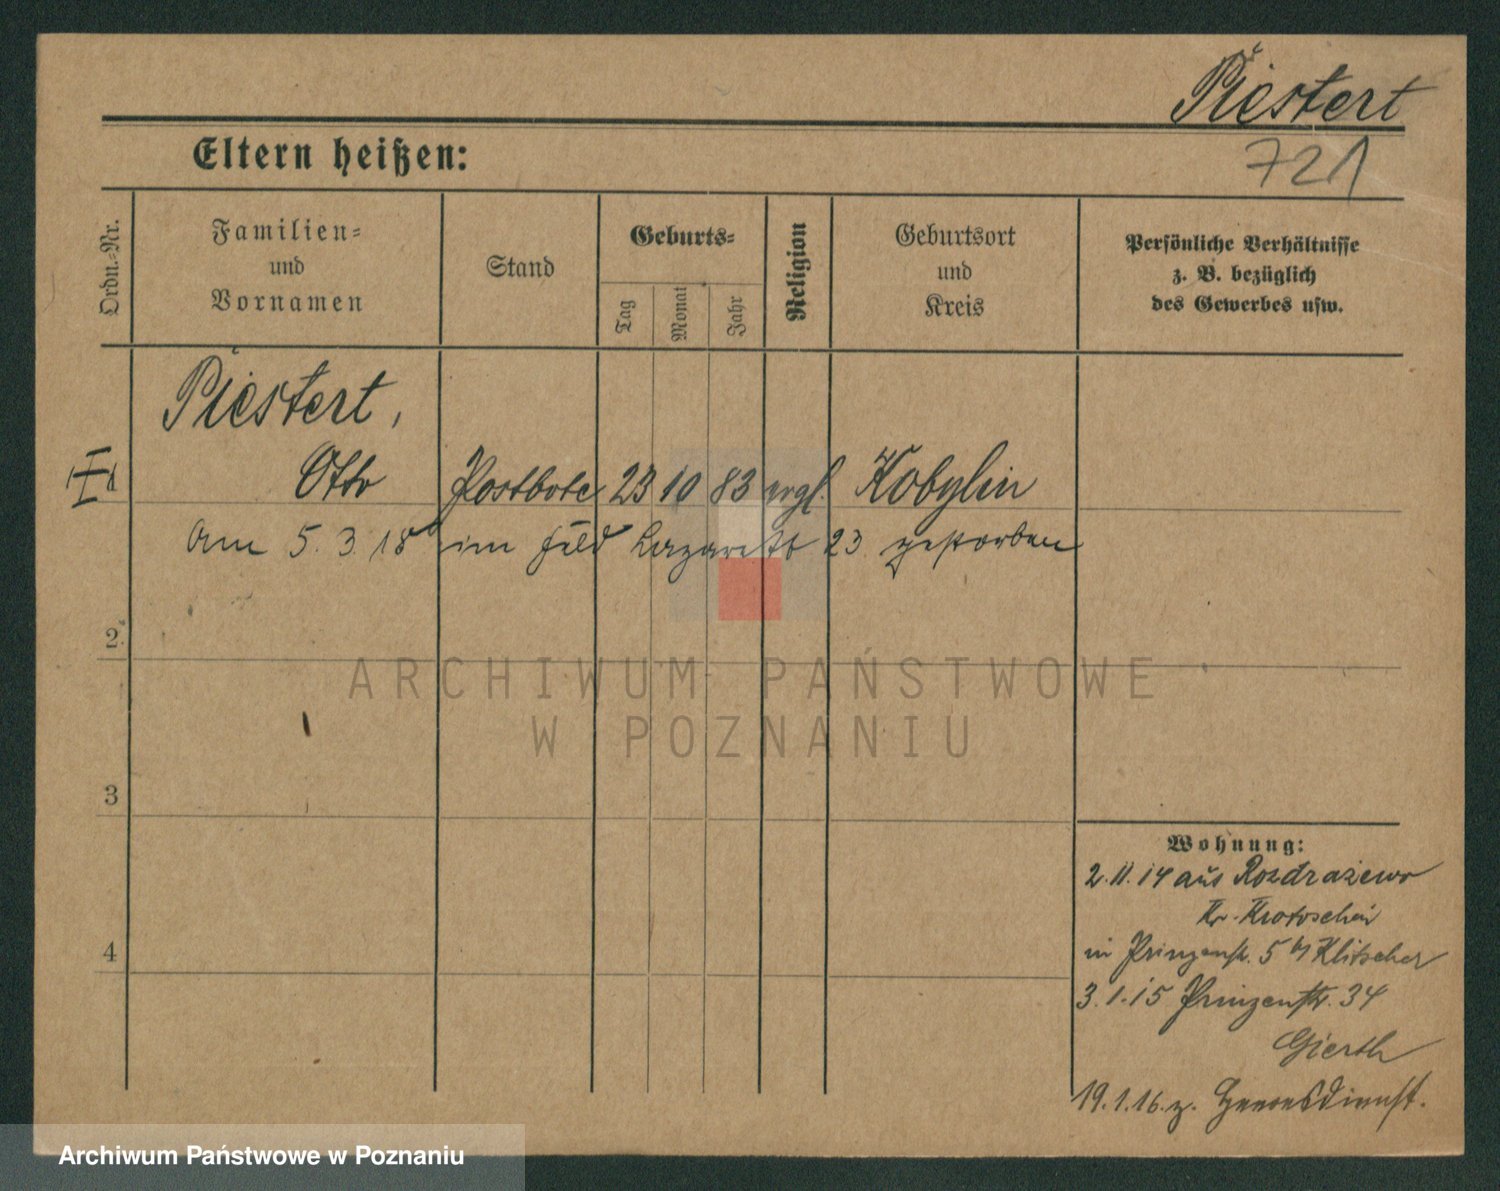 Piestert
721
Eltern heißen:
Ordn.-Nr.
Familien-
und
Vornamen
Stand
Geburts-
Tag
Monat
Jahr
Religion
Geburtsort
und
Kreis
Persönliche Verhältnisse
z. B. bezüglich
des Gewerbes usw.
Piestert,
Otto Postbote 23 10 83 evgl. Kobylin
am 5. 3. 18 im Feld Lazarett 23 gestorben
2.
3
4
ARCHIWUM PAŃSTWOWE
W POZNANIU
Wohnung:
2.11.14 aus Rozdrażewo
Kr. Krotoschin
in Prinzenstr. 5 b/ Klitscher
3.1.15 Prinzenstr. 34
Gierth
19.1.16. z. Heeresdienst.
Archiwum Państwowe w Poznaniu